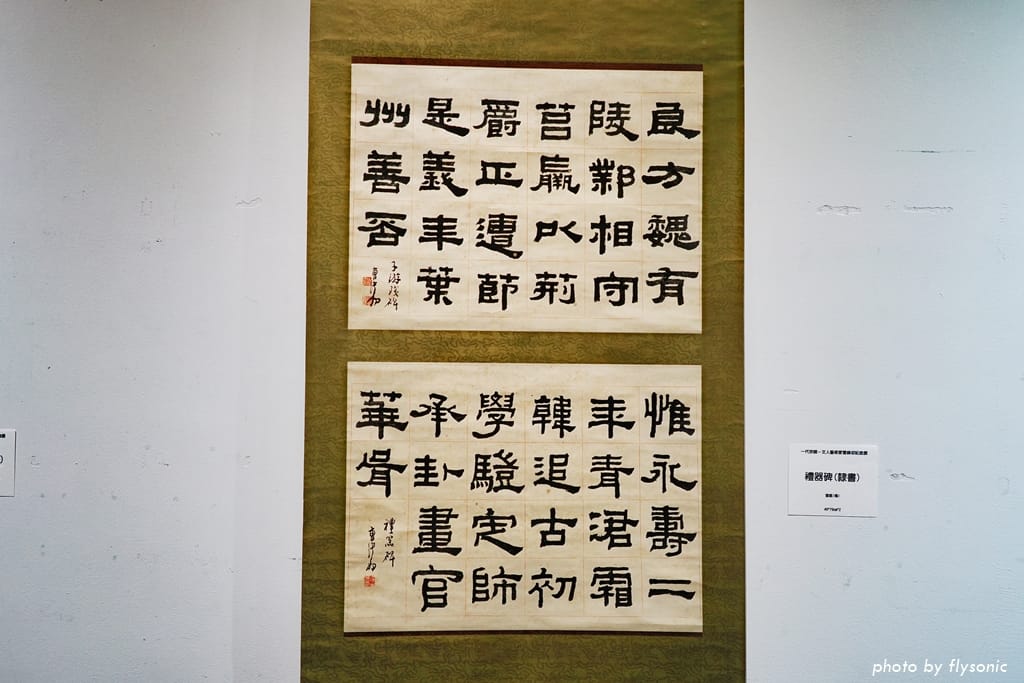 良方魏有
陵鄴相守
莒嬴以荊
爵正遭節
是義年葉
州善否
子游殘碑
曹緯初
惟永壽二
年青涒霜
韓追古初
學驗定師
承卦畫官
華胥
禮器碑
曹緯初
禮器碑(隸書)
photo by flysonic